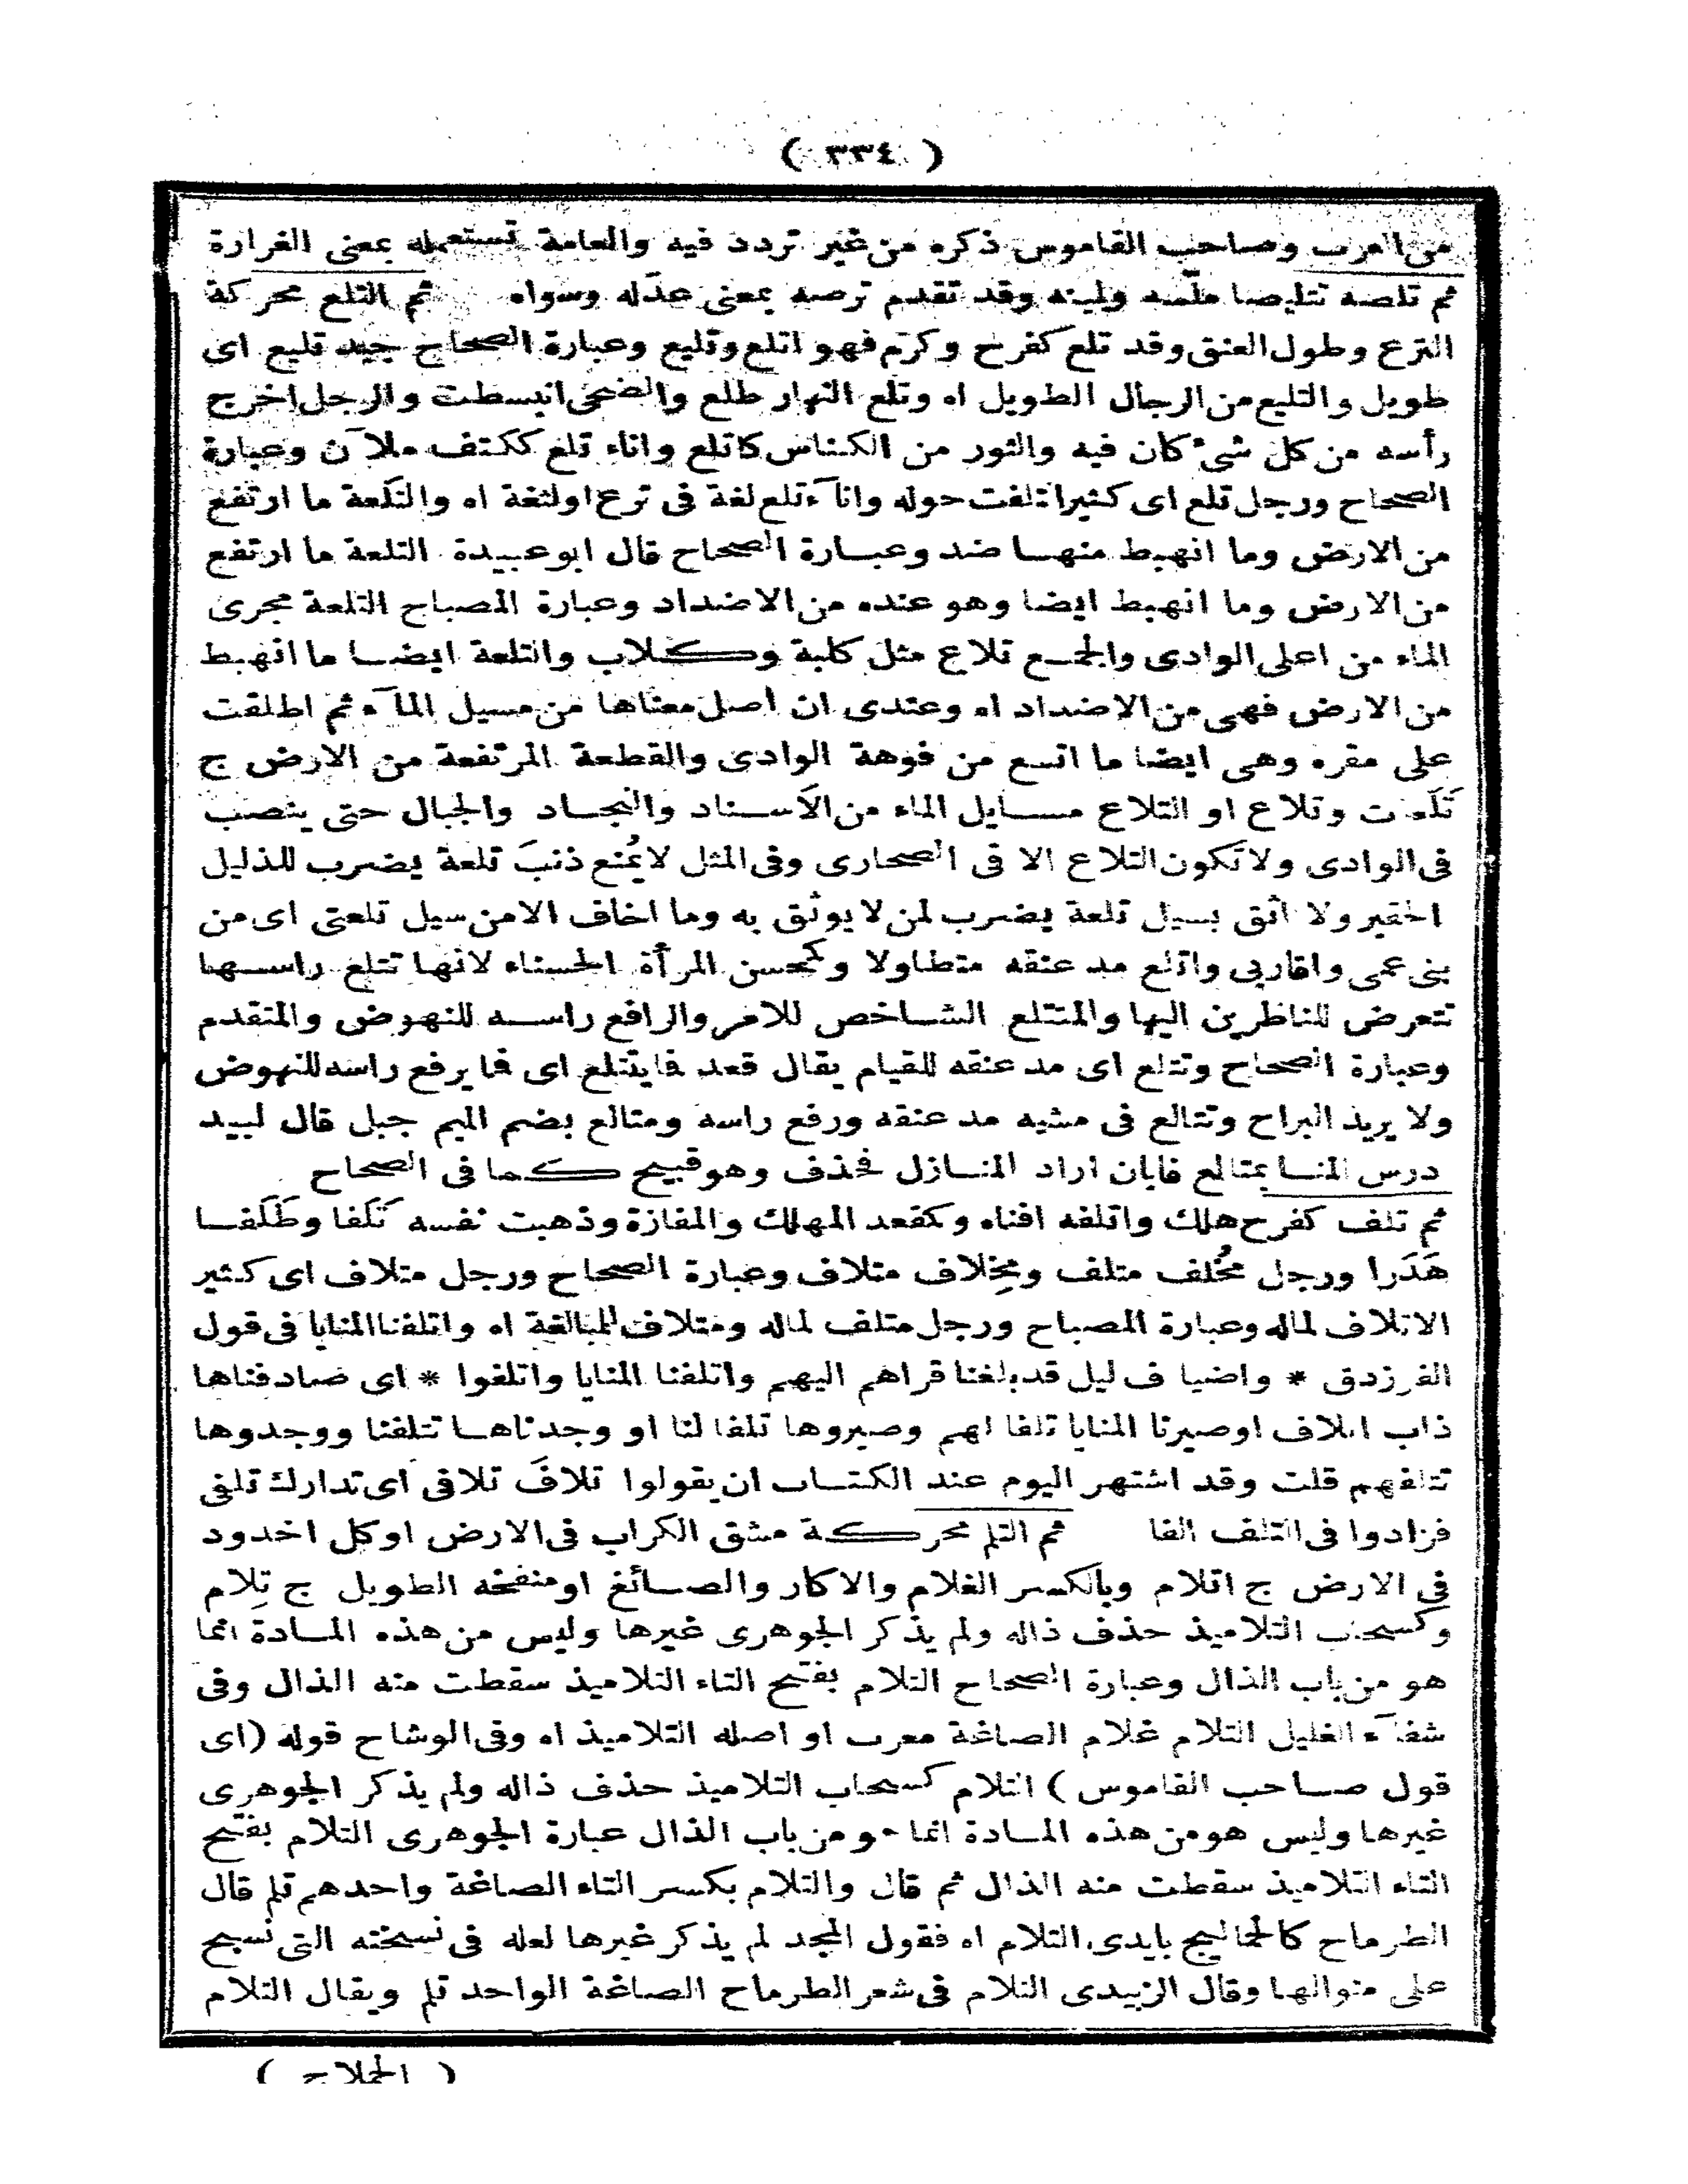 ( ٣٣٤ )
من العرب وصاحب القاموس ذكره من غير تردد فيه والعامة تستعمله بمعنى الغرارة
ثم تلصه تتليصا ملّسه ولينه وقد تقدم ترصه بمعنى عدّله وسواه ثم التلع محركة
الترع وطول العنق وقد تلع كفرح وكرم فهو اتلع وتليع وعبارة الصحاح جيد تليع اى
طويل والتليع من الرجال الطويل اه وتلع النهار طلع والضحى انبسطت والرجل اخرج
رأسه من كل شئ كان فيه والثور من الكناس كاتلع واناء تلع ككتف ملآن وعبارة
الصحاح ورجل تلع اى كثير التلفت حوله وانآء تلع لغة فى ترع او لثغة اه والتَلعة ما ارتفع
من الارض وما انهبط منها ضد وعبارة الصحاح قال ابو عبيدة التلعة ما ارتفع
من الارض وما انهبط ايضا وهو عنده من الاضداد وعبارة المصباح التلعة مجرى
الماء من اعلى الوادى والجمع تلاع مثل كلبة وكلاب والتلعة ايضا ما انهبط
من الارض فهى من الاضداد اه وعندى ان اصل معناها من مسيل المآء ثم اطلقت
على مقره وهى ايضا ما اتسع من فوهة الوادى والقطعة المرتفعة من الارض ج
تَلَعات وتلاع او التلاع مسايل الماء من الاَسناد والنجاد والجبال حتى ينصب
فى الوادى ولا تكون التلاع الا فى الصحارى وفى المثل لا يُمنع ذنبَ تلعة يضرب للذليل
الحقير ولا اثق بسيل تلعة يضرب لمن لا يوثق به وما اخاف الا من سيل تلعتى اى من
بنى عمى واقاربى واتلع مد عنقه متطاولا وكمحسن المرأة الحسناء لانها تتلع راسها
تتعرض للناظرين اليها والمتتلع الشاخص للامر والرافع راسه للنهوض والمتقدم
وعبارة الصحاح وتتلع اى مد عنقه للقيام يقال قعد فما يتتلع اى فما يرفع راسه للنهوض
ولا يريد البراح وتتالع فى مشيه مد عنقه ورفع راسه ومتالع بضم الميم جبل قال لبيد
درس المنا بمتالع فابان اراد المنازل فحذف وهو قبيح كما فى الصحاح
ثم تلف كفرح هلك واتلفه افناه وكمقعد المهلك والمفازة وذهبت نفسه تَلَفا وطَلَفا
هَدَرا ورجل مُخلف متلف ومِخلاف متلاف وعبارة الصحاح ورجل متلاف اى كثير
الاتلاف لماله وعبارة المصباح ورجل متلف لماله ومتلاف للمبالغة اه واتلفنا المنايا فى قول
الفرزدق * واضياف ليل قد بلغنا قراهم اليهم واتلفنا المنايا واتلفوا * اى صادفناها
ذاب اتلاف او صيرنا المنايا تلفا لهم وصيروها تلفا لنا او وجدناها تتلفنا ووجدوها
تتلفهم قلت وقد اشتهر اليوم عند الكتاب ان يقولوا تلافَ تلافى اى تدارك تلفى
فزادوا فى التلف الفا ثم التلم محركة مشق الكراب فى الارض او كل اخدود
فى الارض ج اتلام وبالكسر الغلام والاكار والصائغ او منفخه الطويل ج تِلام
وكسحاب التلاميذ حذف ذاله ولم يذكر الجوهرى غيرها وليس من هذه المادة انما
هو من باب الذال وعبارة الصحاح التلام بفتح التاء التلاميذ سقطت منه الذال وفى
شفآء الغليل التلام غلام الصاغة معرب او اصله التلاميذ اه وفى الوشاح قوله (اى
قول صاحب القاموس) التلام كسحاب التلاميذ حذف ذاله ولم يذكر الجوهرى
غيرها وليس هو من هذه المادة انما هو من باب الذال عبارة الجوهرى التلام بفتح
التاء التلاميذ سقطت منه الذال ثم قال والتلام بكسر التاء الصاغة واحدهم تلم قال
الطرماح كالحماليج بايدى التلام اه فقول المجد لم يذكر غيرها لعله فى نسخته التى نسج
على منوالها وقال الزبيدى التلام فى شعر الطرماح الصاغة الواحد تلم ويقال التلام
( الحملاج )